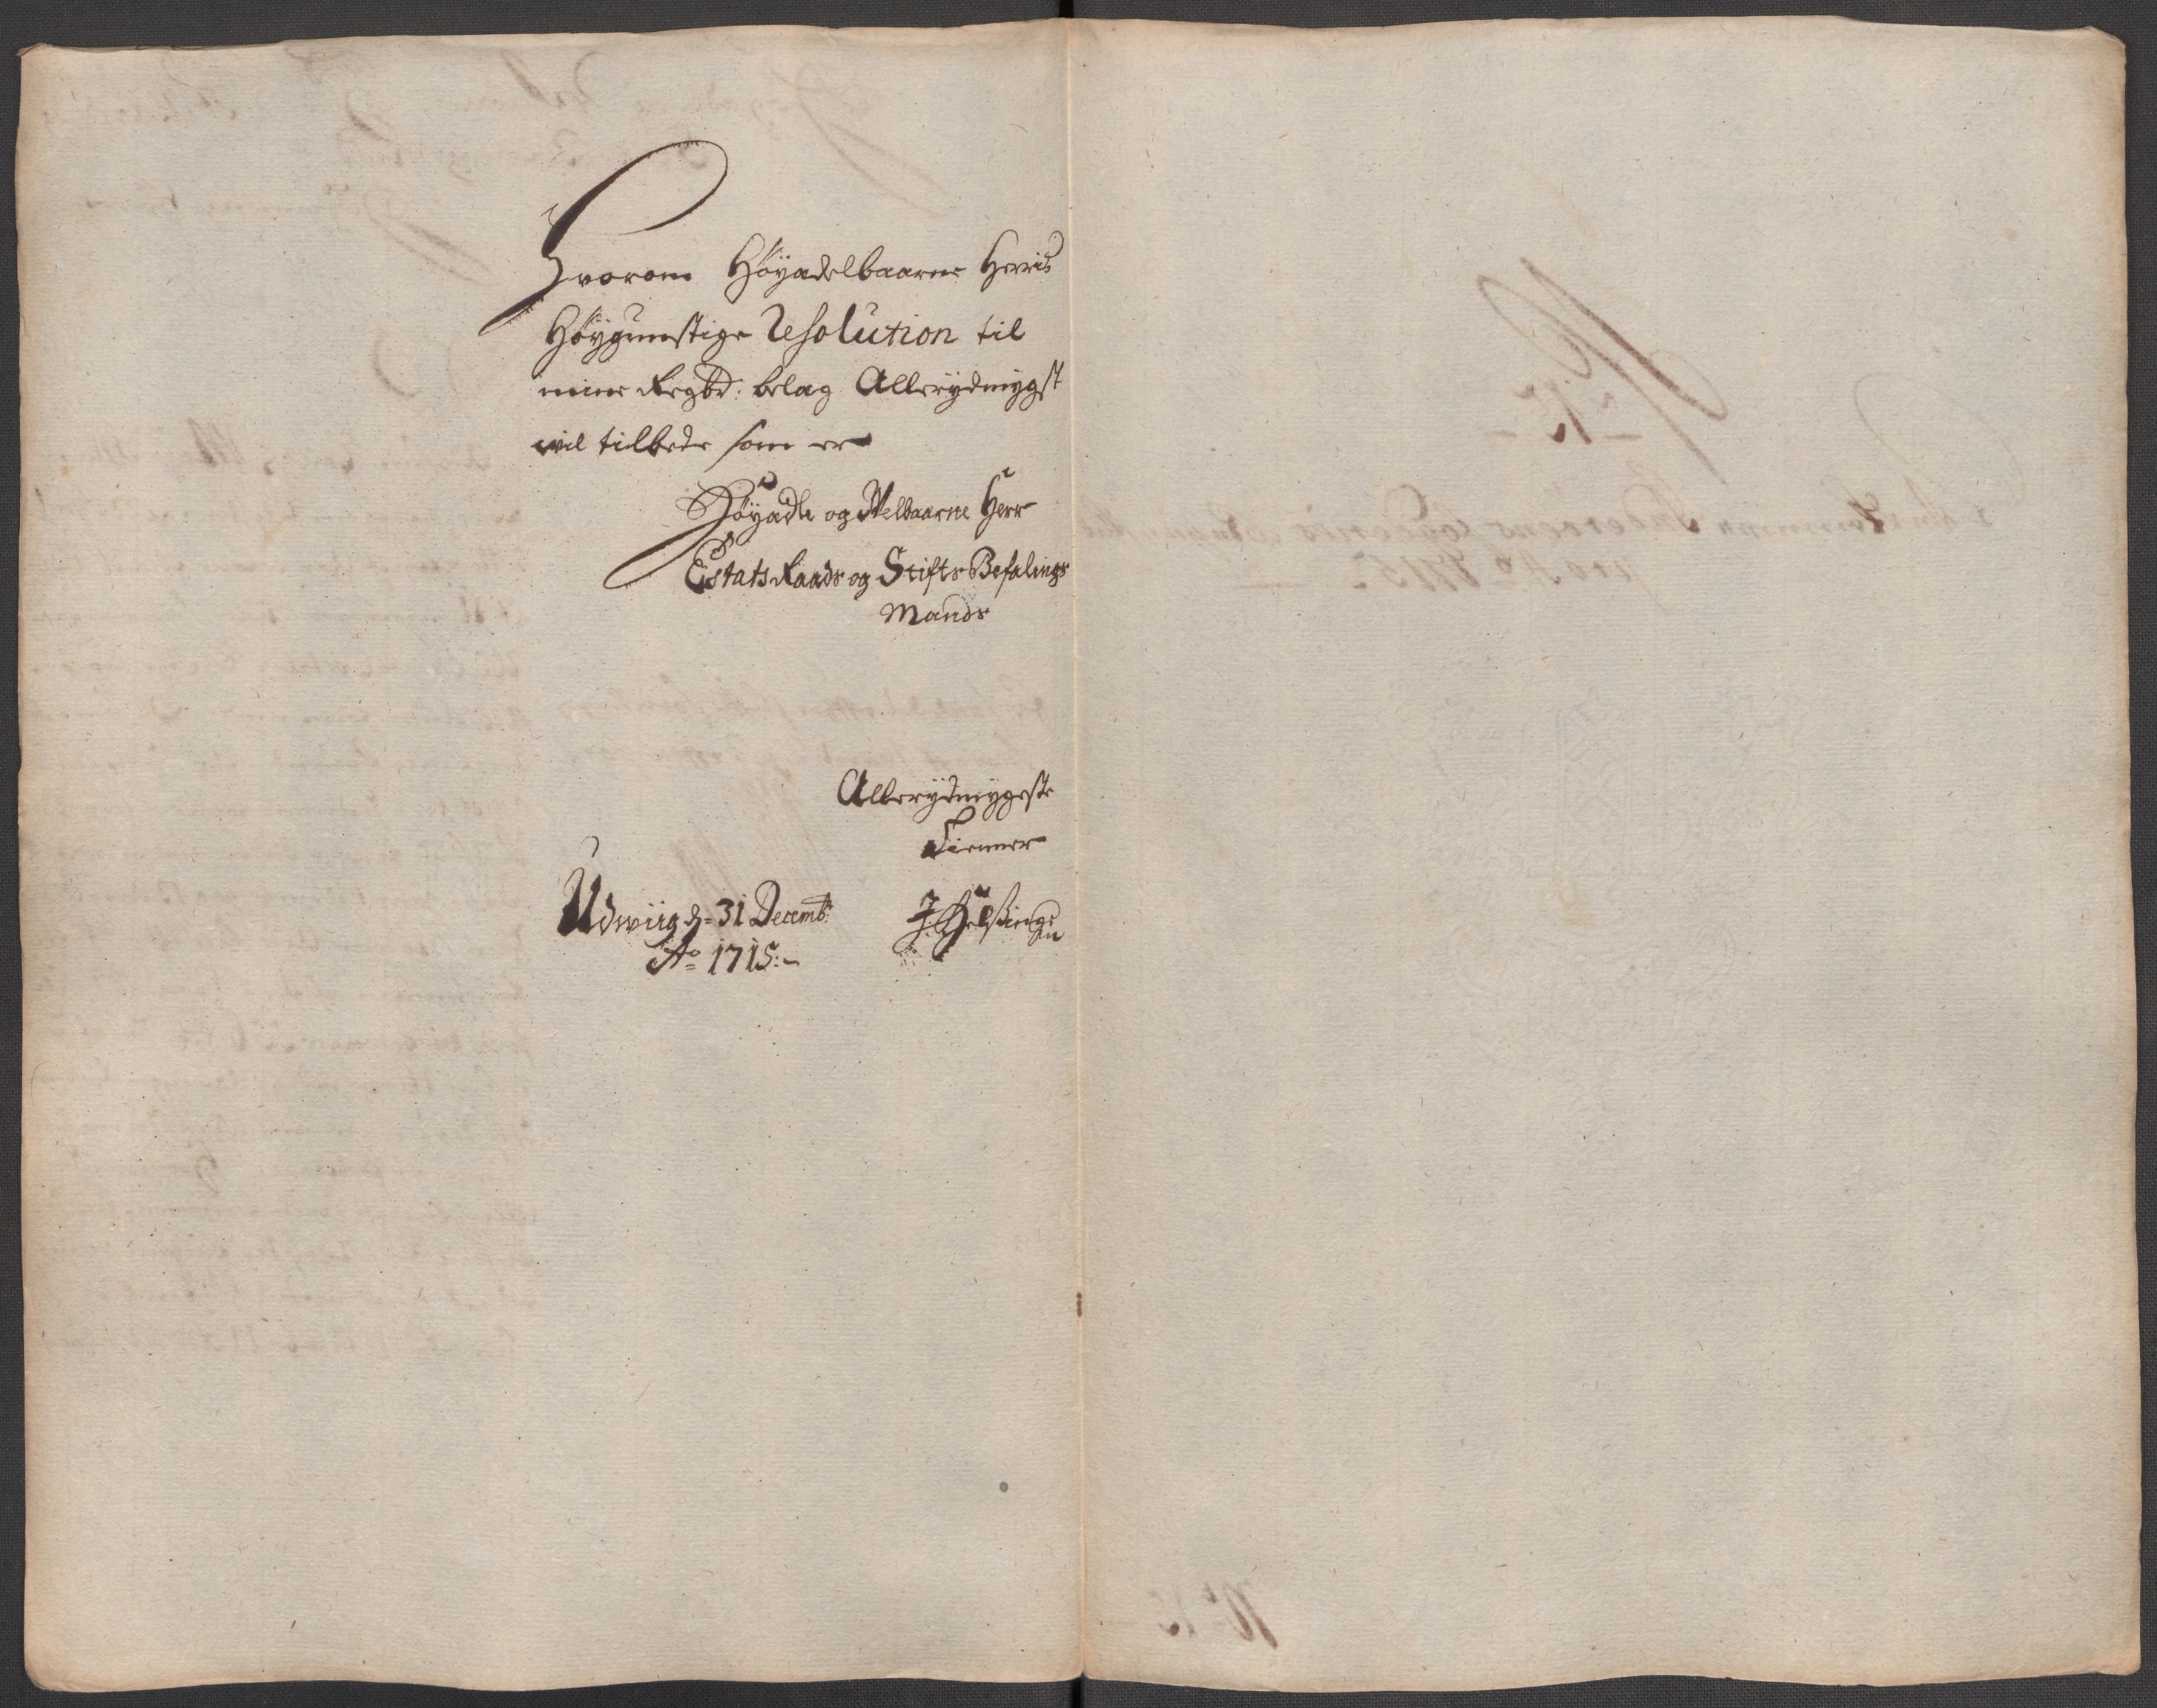 Hvorom Høyædelbaarne Herris
Høygunstige Resolution til
mine Regb: belag Allerydmygst
vil tilbede som er
Høyædle og Welbaarne Herr
Estats Raads og Stifts Befalings
Mands
Allerydmygeste
Tienner
Udwiig d: 31 Decemb:
Ao 1715:-